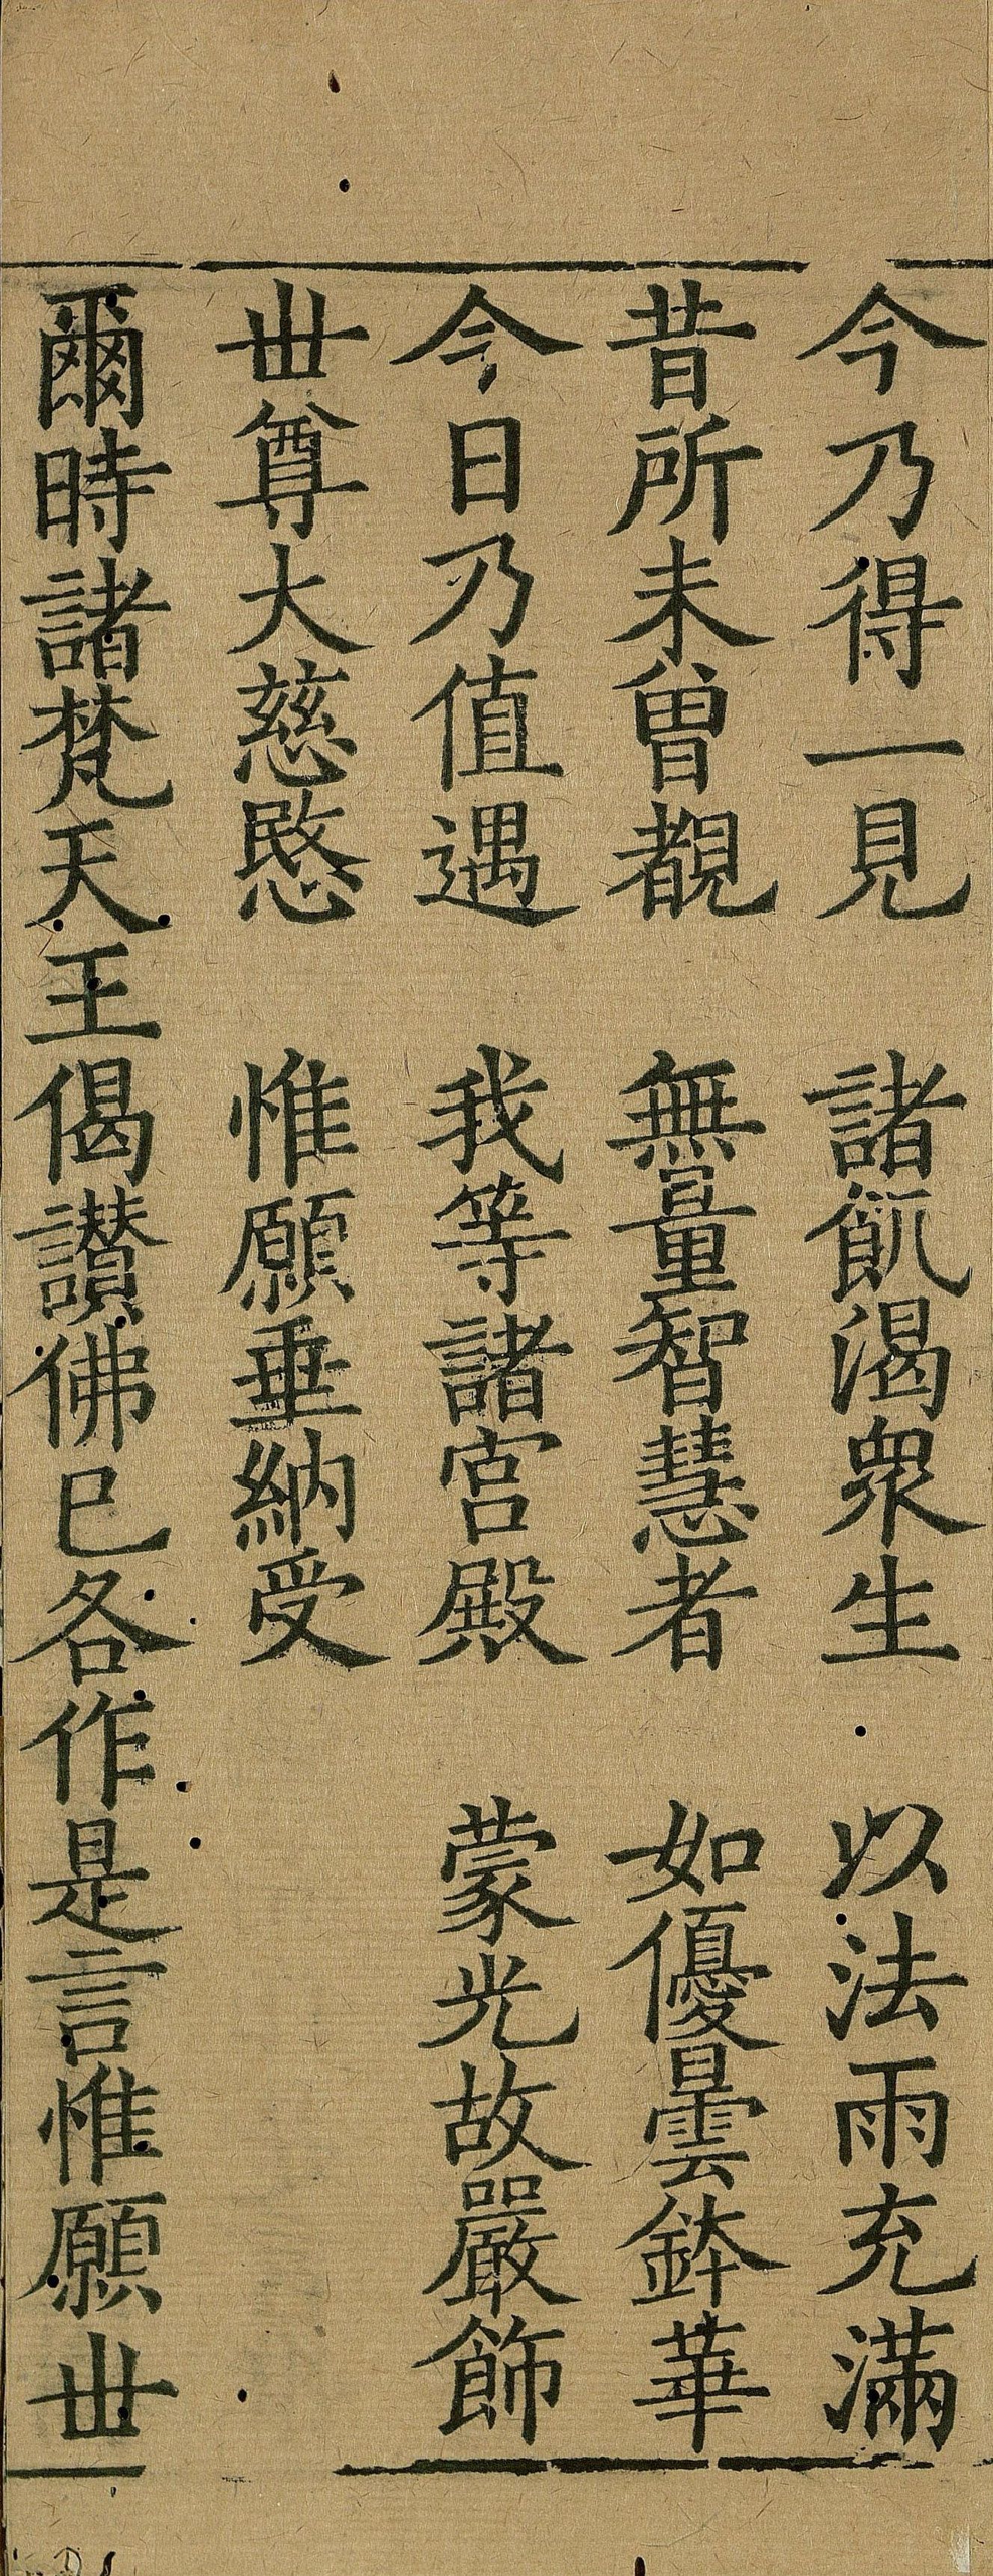 今乃得一見　諸飢渴衆生　以法雨充滿
昔所未曾覩　無量智慧者　如優曇鉢華
今日乃值遇　我等諸宮殿　蒙光故嚴飾
丗尊大慈愍　惟願垂納受
爾時諸梵天王偈讃佛已各作是言惟願丗